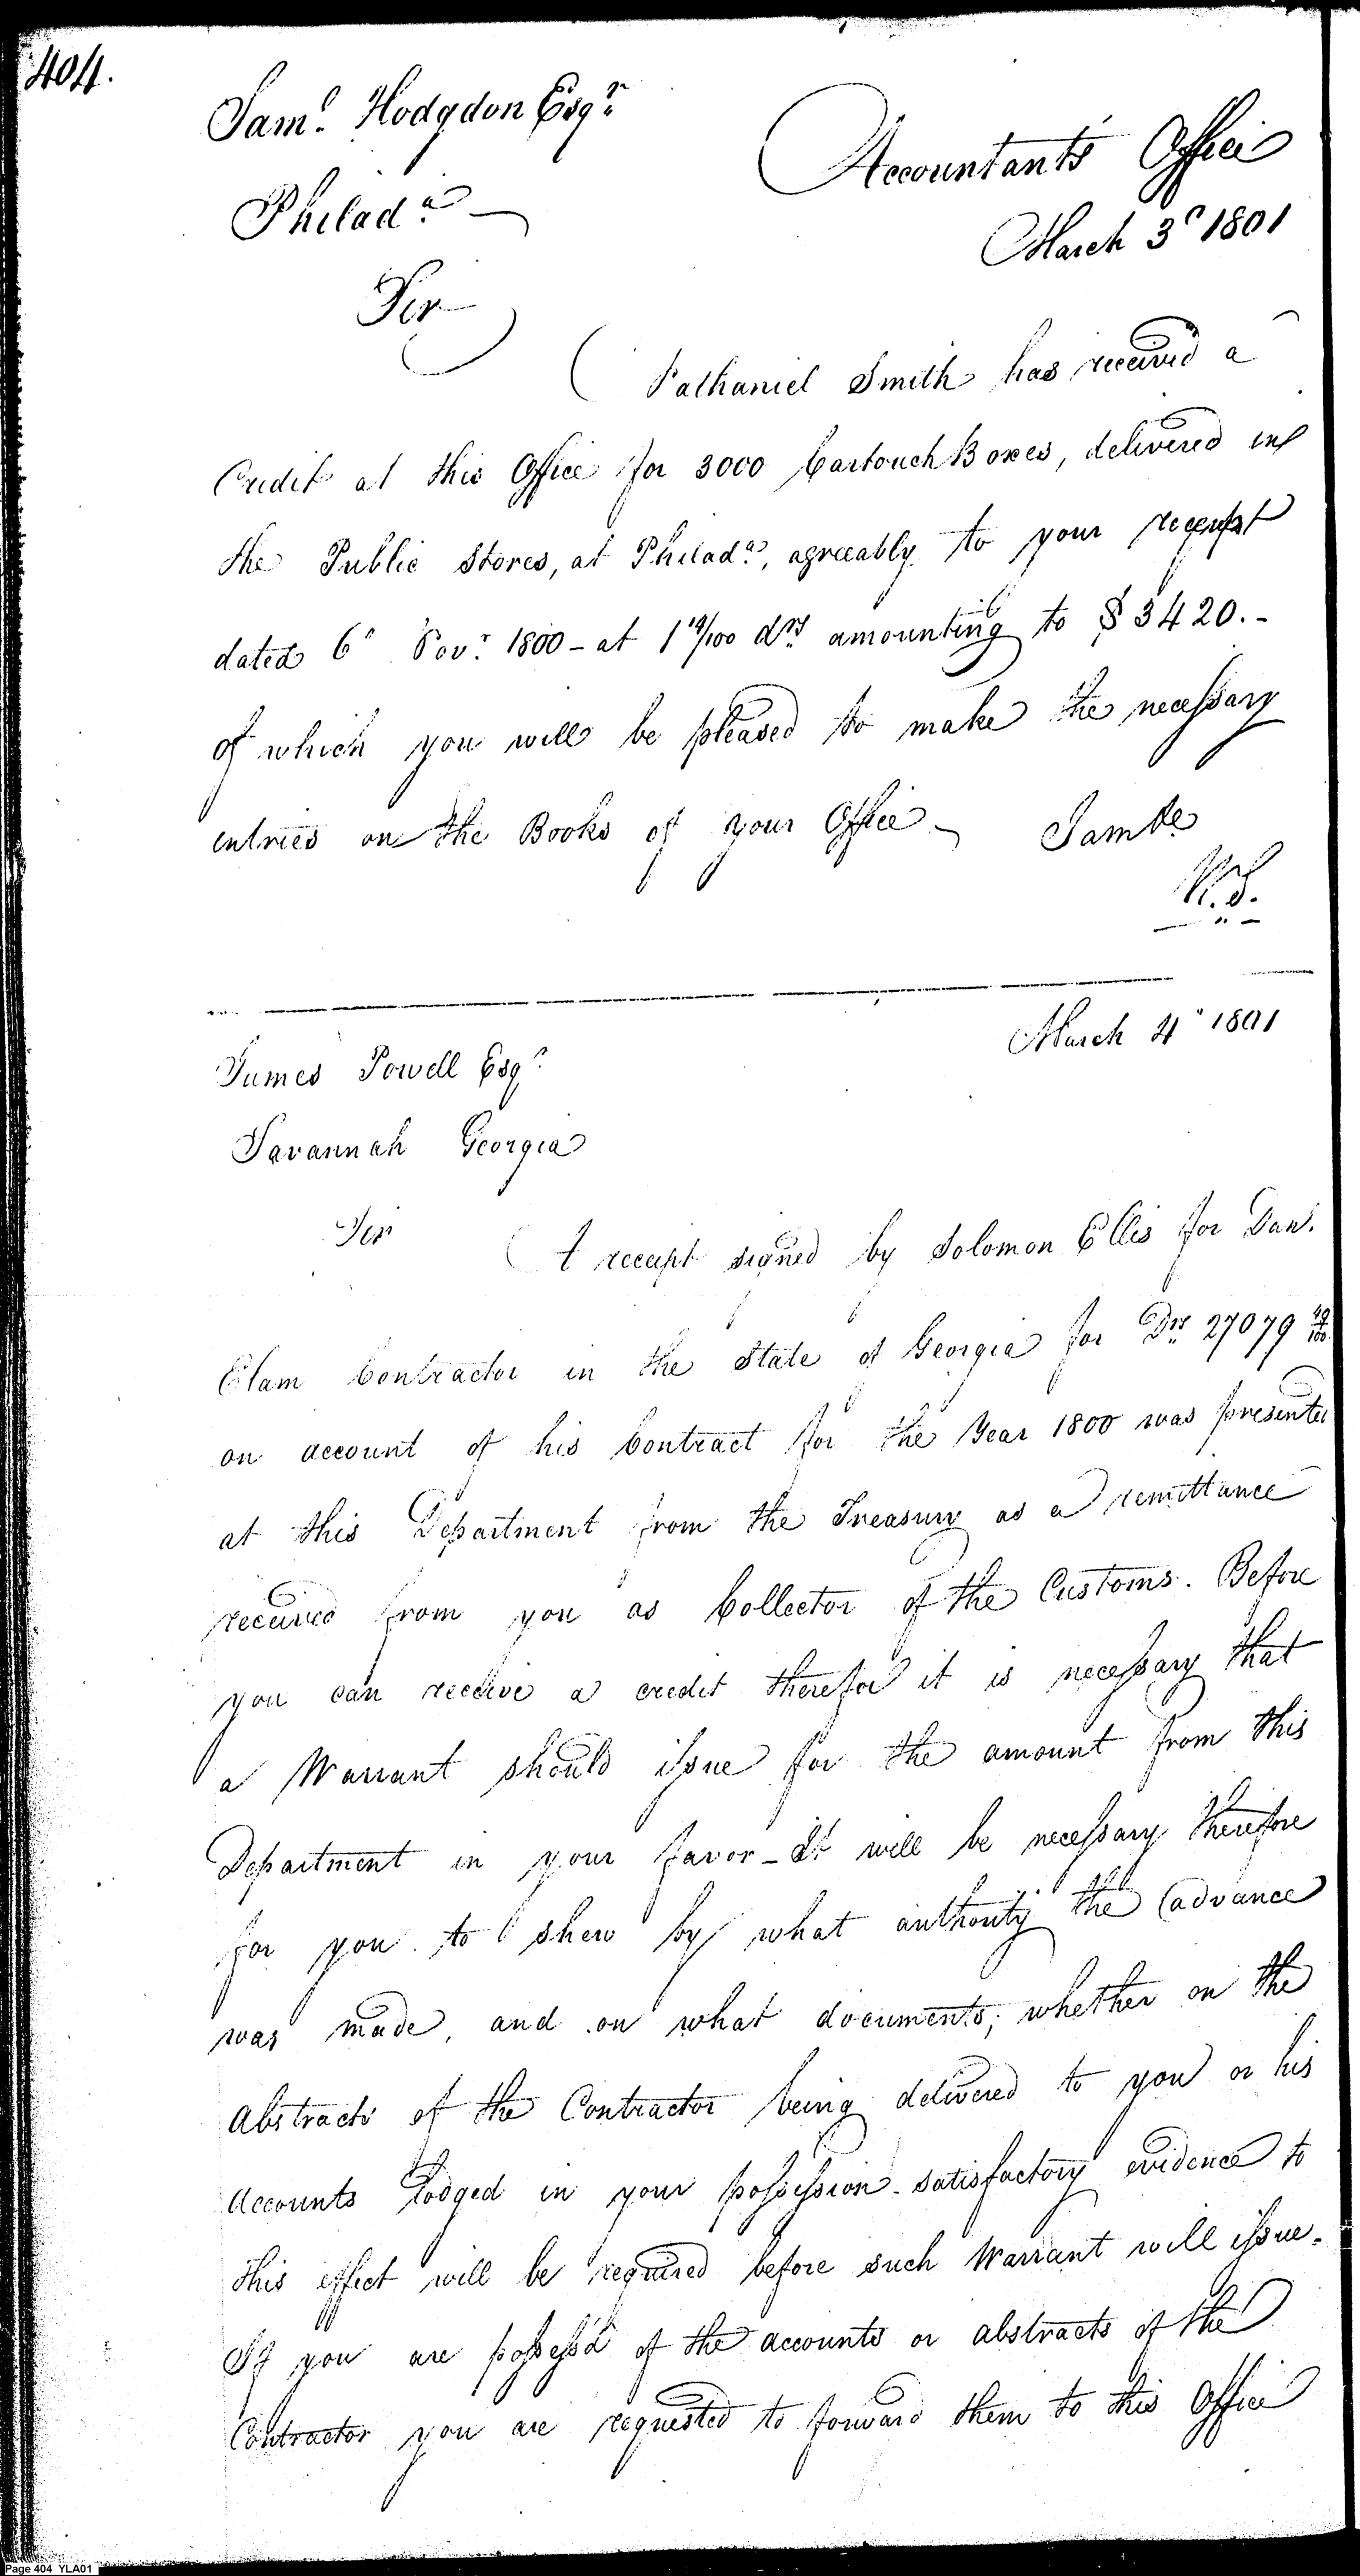 404.
Saml. Hodgdon Esqr.
Philada.
Accountants Office
March 3d 1801
Sir
Nathaniel Smith has received a
Credit at this Office for 3000 Cartouch Boxes, delivered in
the Public Stores, at Philada., agreeably to your receipt
dated 6" Novr. 1800 - at 1 14/100 drs. amounting to $ 3420.-
of which you will be pleased to make the necessary
entries on the Books of your Office
I am &c
W. S.
March 4" 1801
James Powell Esqr.
Savannah Georgia
Sir
A receipt signed by Solomon Ellis for Dan.
Elam Contractor in the State of Georgia for Drs. 27079 49/100
on account of his Contract for the Year 1800 was presented
at this Department from the Treasury as a remittance
received from you as Collector of the Customs. Before
you can receive a credit therefor it is necessary that
a Warrant should issue for the amount from this
Department in your favor - It will be necessary therefore
for you to shew by what authority the advance
was made, and on what documents; whether on the
Abstracts of the Contractor being delivered to you or his
Accounts lodged in your possession - satisfactory evidence to
this effect will be required before such Warrant will issue.
If you are possess'd of the accounts or abstracts of the
Contractor you are requested to forward them to this Office
Page 404 YLA01